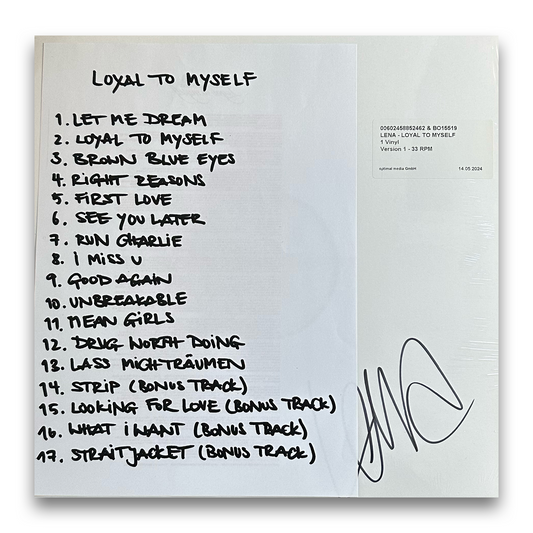 LOYAL TO MYSELF
1. LET ME DREAM
2. LOYAL TO MYSELF
3. BROWN BLUE EYES
4. RIGHT REASONS
5. FIRST LOVE
6. SEE YOU LATER
7. RUN CHARLIE
8. I MISS U
9. GOOD AGAIN
10. UNBREAKABLE
11. MEAN GiRLS
12. DRUG WORTH DOING
13. LASS MICH TRÄUMEN
14. STRIP (BONUS TRACK)
15. LOOKING FOR LOVE (BONUS TRACK)
16. WHAT i WANT (BONUS TRACK)
17. STRAiTJACKET (BONUS TRACK)
00602458852462 & BO15519
LENA - LOYAL TO MYSELF
1 Vinyl
Version 1 - 33 RPM
optimal media GmbH 14.05.2024